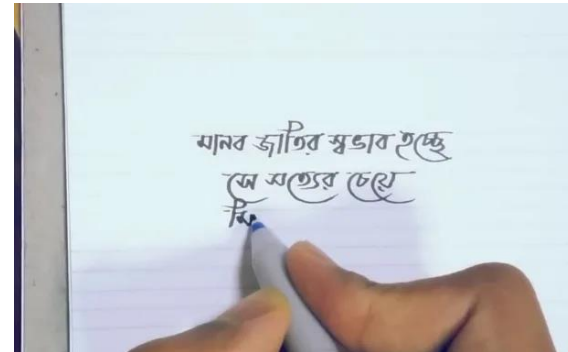 মানব জাতির স্বভাব হচ্ছে
সে সত্যের চেয়ে